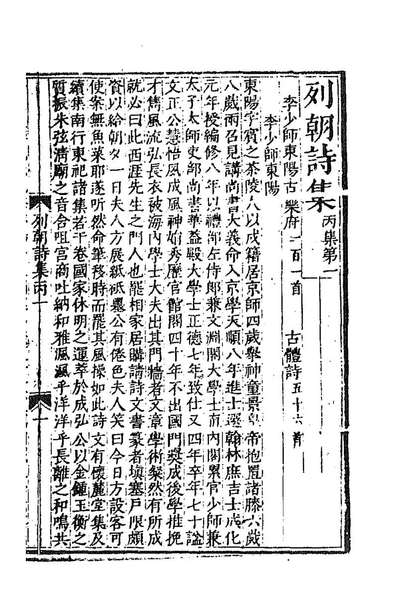 列朝詩集 丙集第一
李少師東陽古樂府一百一首 古體詩五十六首
李少師東陽
東陽字賓之茶陵人以戍籍居京師四歲舉神童景皇帝抱置諸膝六歲
八歲兩召見講尚書大義命入京學天順八年進士選翰林庶吉士成化
元年授編修八年以禮部左侍郎兼文淵閣大學士直內閣累官少師兼
太子太師吏部尚書華葢殿大學士正德七年致仕又四年卒年七十諡
文正公慧悟夙成風神娟秀歷官館閣四十年不出國門奬成後學推挽
才雋風流弘長衣被海內學士大夫出其門牆者文章學術粲然有所成
就必曰此西涯先生之門人也罷相家居購請詩文書篆者塡塞戶限頗
資以給朝夕一日夫人方展紙研墨公有倦色夫人笑曰今日方設客可
使案無魚菜耶遂欣然命筆移時而罷其風操如此詩文有懷麓堂集及
續集南行東祀諸集若干卷國家休明之運萃於成弘公以金鍾玉衡之
質振朱弦淸廟之音含咀宮商吐納和雅渢渢乎洋洋乎長離之和鳴共
列朝詩集丙一
一